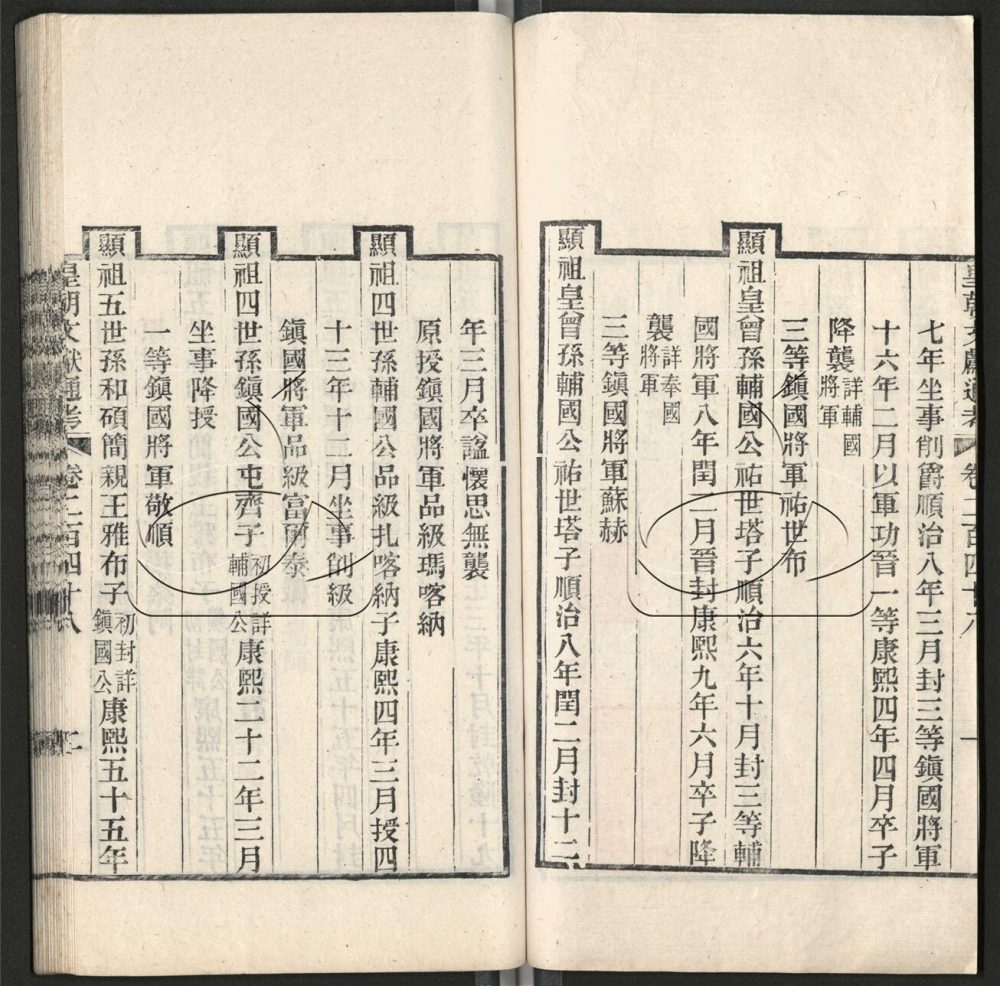 皇朝文獻通考　卷二百四十八　一
七年坐事削爵順治八年三月封三等鎮國將軍
十六年二月以軍功晉一等康熙四年四月卒子
降襲詳輔國將軍
三等鎮國將軍祐世布
顯祖皇曾孫輔國公祐世塔子順治六年十月封三等輔
國將軍八年閏二月晉封康熙九年六月卒子降
襲詳奉國將軍
三等鎮國將軍蘇赫
顯祖皇曾孫輔國公祐世塔子順治八年閏二月封十二
年三月卒諡懷思無襲
原授鎮國將軍品級瑪喀納
顯祖四世孫輔國公品級扎喀納子康熙四年三月授四
十三年十二月坐事削級
鎮國將軍品級富爾泰
顯祖四世孫鎮國公屯齊子初授詳輔國公康熙二十二年三月
坐事降授
一等鎮國將軍敬順
顯祖五世孫和碩簡親王雅布子初封詳鎮國公康熙五十五年
皇朝文獻通考　卷二百四十八　二